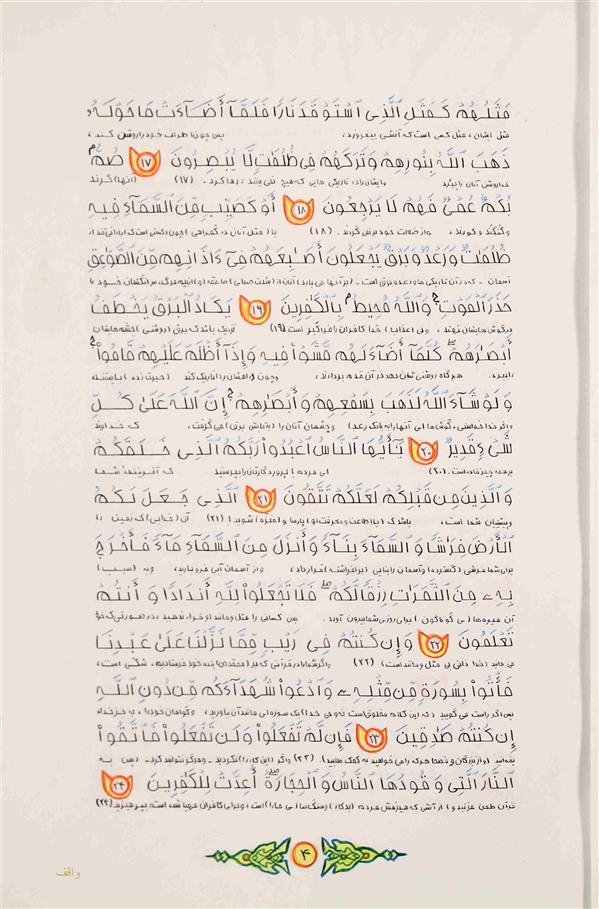 مَثَلُهُمْ كَمَثَلِ الَّذِي اسْتَوْقَدَ نَارًا فَلَمَّآ أَضَآءَتْ مَا حَوْلَهُ
مثل ایشان، مثل کسی است که آتشی بیفروزد، پس چون اطراف خود را روشن کند،
ذَهَبَ اللَّهُ بِنُورِهِمْ وَتَرَكَهُمْ فِي ظُلُمَاتٍ لَّا يُبْصِرُونَ ۱۷ صُمٌّ
خدا روشنی آنان را ببرد و ایشان را در تاریکی هایی که هیچ نمی بینند، رها کرد. (۱۷) (آنها) کرند
بُكْمٌ عُمْيٌ فَهُمْ لَا يَرْجِعُونَ ۱۸ أَوْ كَصَيِّبٍ مِّنَ السَّمَآءِ فِيهِ
و گنگند و کورند، و از ضلالت خود برنمی گردند. (۱۸) یا (مثل آنان در گمراهی) چون کسی است که بارانی تند از
ظُلُمَاتٌ وَرَعْدٌ وَبَرْقٌ يَجْعَلُونَ أَصَابِعَهُمْ فِيٓ ءَاذَانِهِم مِّنَ الصَّوَاعِقِ
آسمان - که در آن تاریکی ها و رعد و برق است - (بر آنها می بارد) آنان از (شدت صدای) صاعقه (و) از بیم مرگ، سر انگشتان خود را
حَذَرَ الْمَوْتِ ۚ وَاللَّهُ مُحِيطٌ بِالْكَافِرِينَ ۱۹ يَكَادُ الْبَرْقُ يَخْطَفُ
بر گوش هایشان نهند، خدا کافران را فراگیر است (۱۹) نزدیک باشد که برق (روشنی) چشم هایشان
أَبْصَارَهُمْ ۖ كُلَّمَآ أَضَآءَ لَهُم مَّشَوْا فِيهِ وَإِذَآ أَظْلَمَ عَلَيْهِمْ قَامُوا ۚ
را ببرد، هرگاه روشنی نشان دهد در آن قدم بردارند، و چون (راهشان را) تاریک کند (حیرت زده) بایستند
وَلَوْ شَآءَ اللَّهُ لَذَهَبَ بِسَمْعِهِمْ وَأَبْصَارِهِمْ ۚ إِنَّ اللَّهَ عَلَىٰ كُلِّ
و اگر خدا می خواست، گوش ها و چشمان آنان را می گرفت، که خداوند
شَيْءٍ قَدِيرٌ ۲۰ يَآأَيُّهَا النَّاسُ اعْبُدُوا رَبَّكُمُ الَّذِي خَلَقَكُمْ
بر همه چیز تواناست. (۲۰) ای مردم! پروردگارتان را بپرستید که آفریننده شما
وَالَّذِينَ مِن قَبْلِكُمْ لَعَلَّكُمْ تَتَّقُونَ ۲۱ الَّذِي جَعَلَ لَكُمُ
و پیشینیان شما است، باشد که (با اطاعت و معرفت او) پارسا و (منزه) شوید! (۲۱) آن (خدایی) که زمین را
الْأَرْضَ فِرَاشًا وَالسَّمَآءَ بِنَآءً وَأَنزَلَ مِنَ السَّمَآءِ مَآءً فَأَخْرَجَ
برای شما فرشی (گسترده) و آسمان را بنایی (برافراشته) قرار داد، و از آسمان آبی فرو بارید و به (سبب)
بِهِ مِنَ الثَّمَرَاتِ رِزْقًا لَّكُمْ ۖ فَلَا تَجْعَلُوا لِلَّهِ أَندَادًا وَأَنتُمْ
آن میوه ها (ی گوناگون) برای روزی شما بیرون آورد. پس کسانی را مثل و مانند او قرار ندهید، در صورتی که خود
تَعْلَمُونَ ۲۲ وَإِن كُنتُمْ فِي رَيْبٍ مِّمَّا نَزَّلْنَا عَلَىٰ عَبْدِنَا
می دانید (خدا ذاتی بی مثل و مانند است) (۲۲) و اگر شما را در قرآنی که بر (محمد ص) بنده خود فرستادیم، شکی است،
فَأْتُوا بِسُورَةٍ مِّن مِّثْلِهِ وَادْعُوا شُهَدَآءَكُم مِّن دُونِ اللَّهِ
پس اگر راست می گویید (که این کلام مخلوق است نه وحی خدا) یک سوره ای مانند آن بیاورید، و گواهان خود را، به جز خدا،
إِن كُنتُمْ صَادِقِينَ ۲۳ فَإِن لَّمْ تَفْعَلُوا وَلَن تَفْعَلُوا فَاتَّقُوا
بخوانید (و از بزرگان و فصحا هر که را می خواهید به کمک طلبید). (۲۳) و اگر (این کار را) نکردید - و هرگز نتوانید کرد - (پس به
النَّارَ الَّتِي وَقُودُهَا النَّاسُ وَالْحِجَارَةُ ۖ أُعِدَّتْ لِلْكَافِرِينَ ۲۴
قرآن طعن مزنید و) از آتشی که هیزمش مردم (بدکار) و سنگ ها (ی خارا) است، و برای کافران مهیا شده است، بپرهیزید (۲۴)
۴
واقف